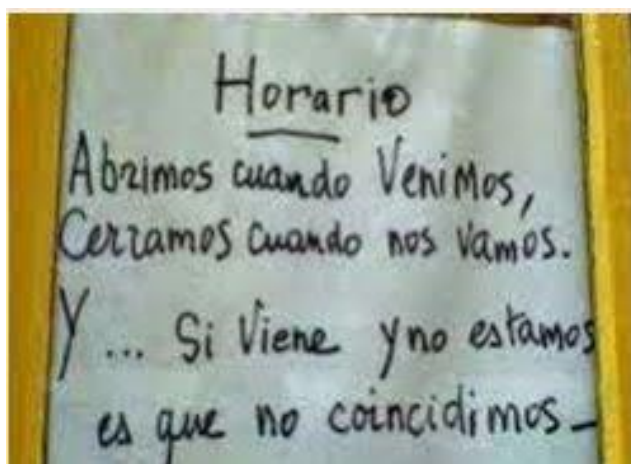 Horario
Abrimos cuando Venimos,
Cerramos cuando nos vamos.
Y... Si Viene y no estamos
es que no coincidimos_